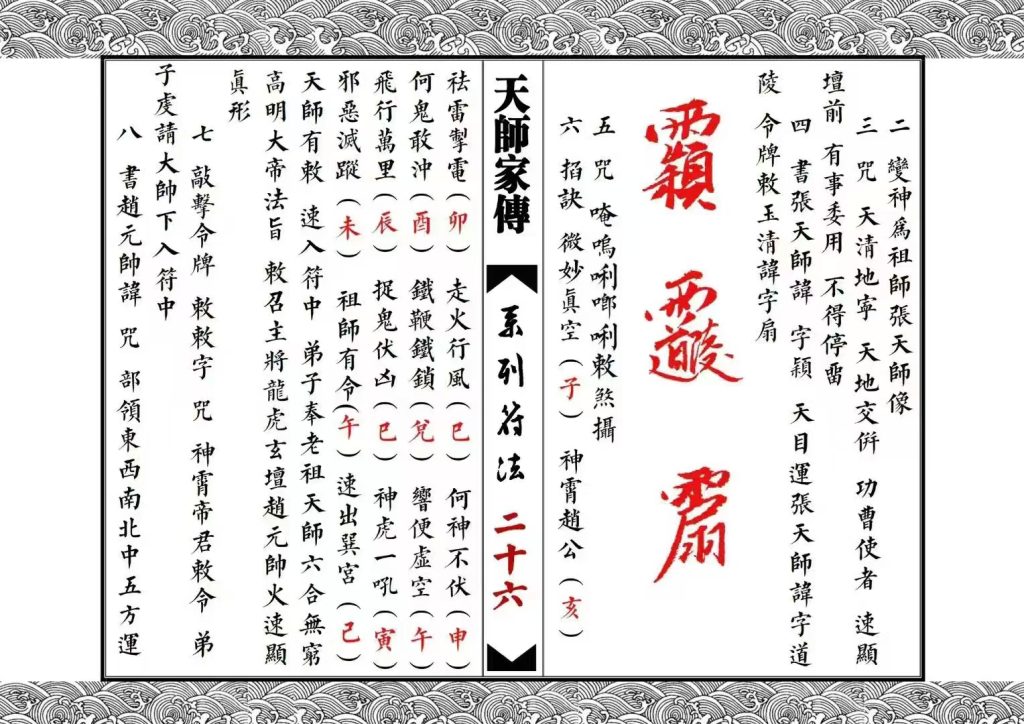 二 變神爲祖師張天師像
三 咒 天清地寧 天地交倂 功曹使者 速顯
壇前 有事委用 不得停畱
四 書張天師諱 字穎 天目運張天師諱字道
陵 令牌敕玉清諱字扇
五 咒 唵嗚唎啷唎敕煞攝
六 掐訣 微妙眞空(子) 神霄趙公(亥)
天師家傳
系列符法
二十六
祛雷掣電(卯) 走火行風(巳) 何神不伏(申)
何鬼敢沖(酉) 鐵鞭鐵鎖(兌) 響便虛空(午)
飛行萬里(辰) 捉鬼伏凶(巳) 神虎一吼(寅)
邪惡滅蹤(未) 祖師有令(午) 速出巽宮(己)
天師有敕 速入符中 弟子奉老祖天師六合無窮
高明大帝法旨 敕召主將龍虎玄壇趙元帥火速顯
眞形
七 敲擊令牌 敕敕字 咒 神霄帝君敕令 弟
子虔請大帥下入符中
八 書趙元帥諱 咒 部領東西南北中五方運